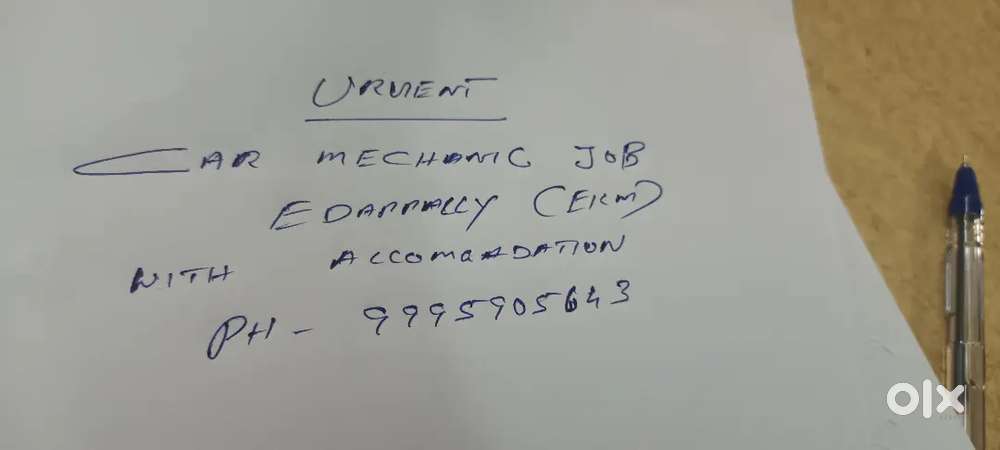 URGENT
CAR MECHANIC JOB
EDAPPALLY (EKM)
WITH ACCOMADATION
PH - 9995905643
olx